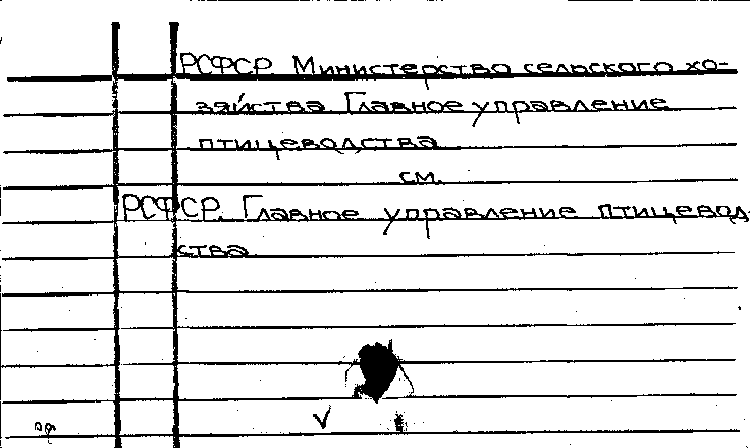 РСФСР. Министерство сельского хо-
зяйства. Главное управление
птицеводства
см.
РСФСР. Главное управление птицевод-
ства